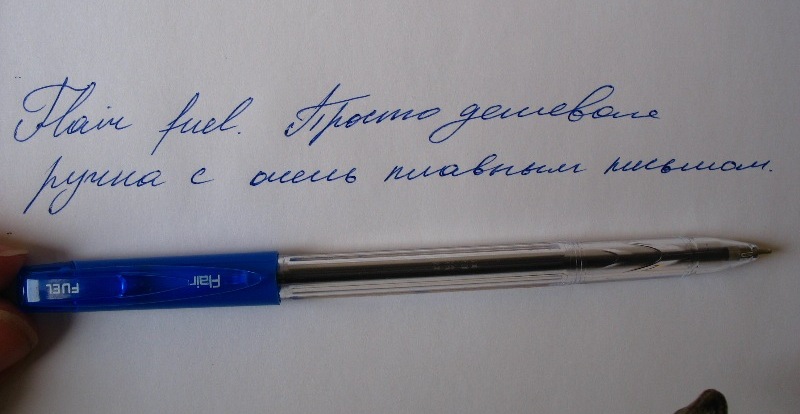 Flair fuel. Просто дешевая
ручка с очень плавным письмом.
Flair
FUEL